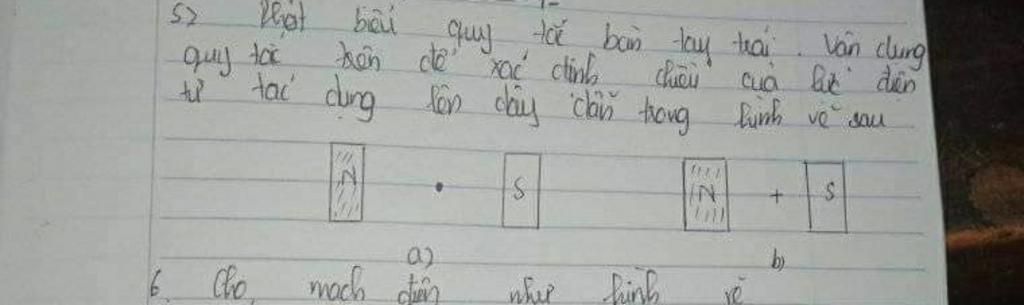 5> Phát biểu quy tắc bàn tay trái. Vận dụng
quy tắc trên để xác định chiều của lực điện
từ tác dụng lên dây dẫn trong hình vẽ sau
N • S N + S
a) b)
6. Cho mạch điện như hình vẽ